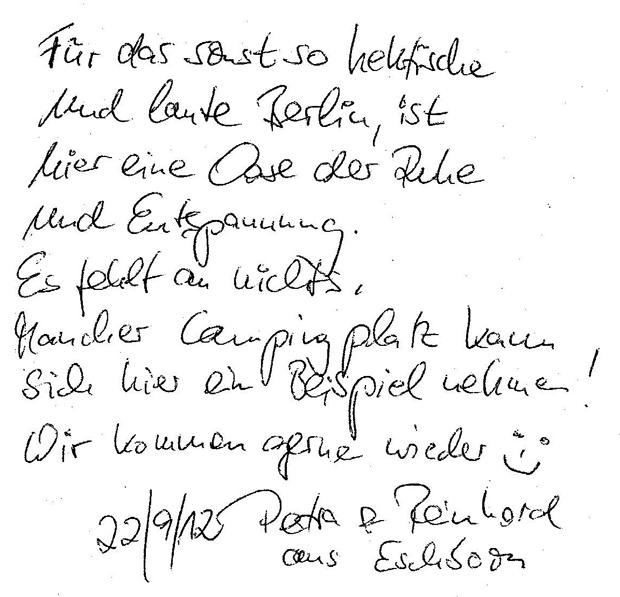 Für das sonst so hektische
und laute Berlin, ist
hier eine Oase der Ruhe
und Entspannung.
Es fehlt an nichts.
Mancher Campingplatz kann
sich hier ein Beispiel nehmen!
Wir kommen gerne wieder
22/9/12 Petra & Reinhard
aus Eschborn